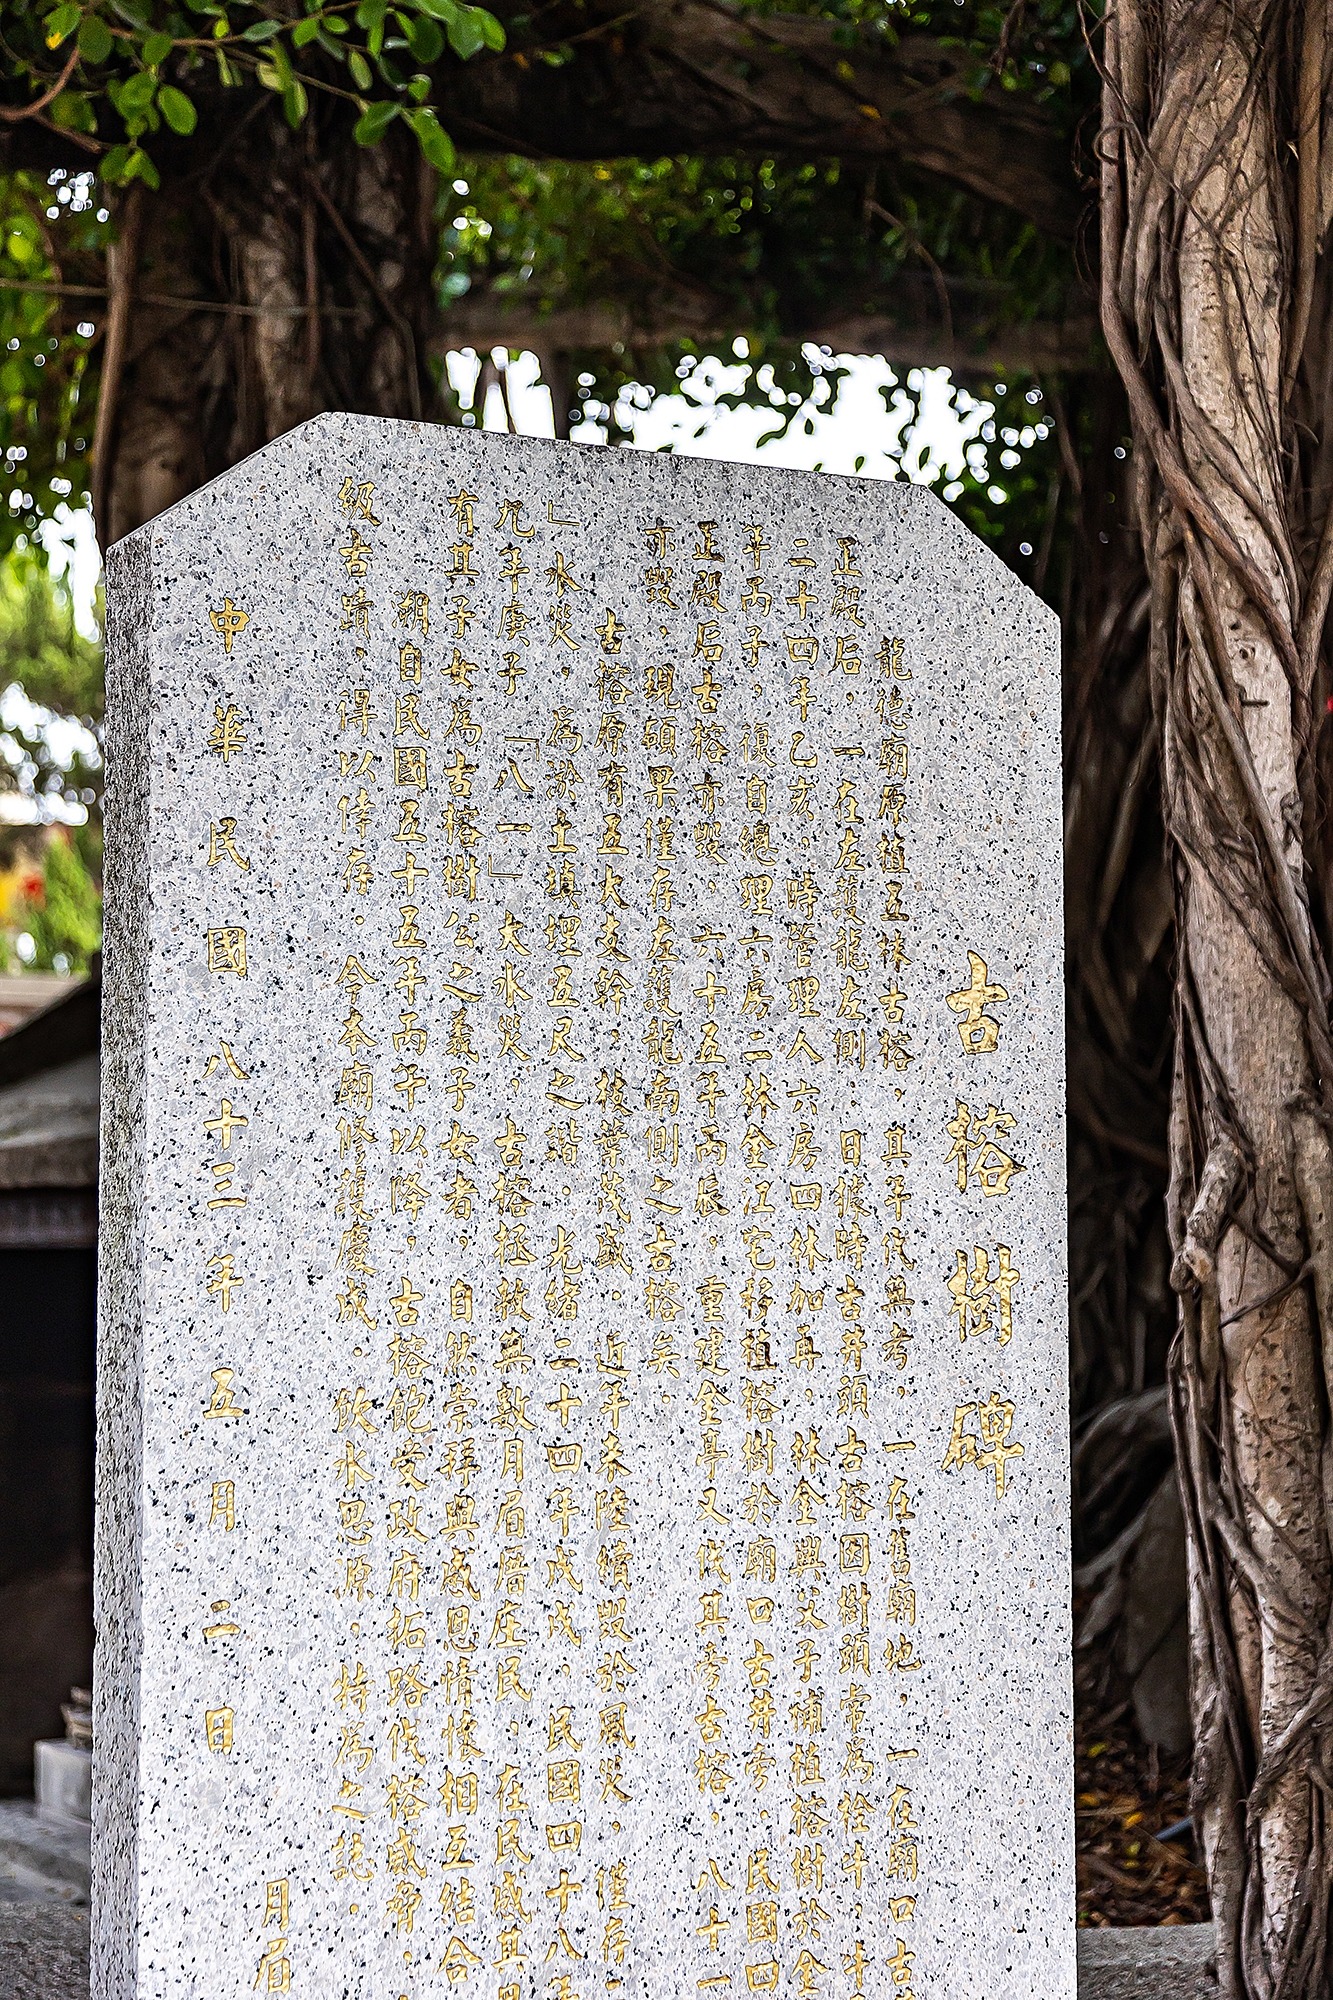 古榕樹碑
龍德廟廓植五株古榕，其年代無考，一在舊廟地，一在廟口古
正殿后，一在左護龍左側．日據時古井頭古榕因樹頭常為栓牛，牛
二十四年乙亥，時管理人六房四林加再，林全興父子補植榕樹於金
年丙子，復自總理六房二林金江宅移植榕樹於廟口古井旁．民國四
正殿后古榕亦毀，六十五年丙辰，重建金亭又伐其旁古榕，八十一
亦毀，現碩果僅存左護龍南側之古榕矣．
古榕原有五大支幹，枝葉茂盛．近年來陸續毀於風災，僅存
」水災，為淤土填埋五尺之譜．光緒二十四年戊戌，民國四十八年
九年庚子「八一」大水災，古榕拯救無數月眉厝庄民，在民感其
有其子女為古榕樹公之義子女者，自然崇拜與感恩情懷相互結合
溯自民國五十五年丙午以降，古榕飽受政府拓路伐榕威脅，
級古蹟，得以倖存．今本廟修護慶成．飲水思源，特為之誌．
中華民國八十三年五月二日
月眉